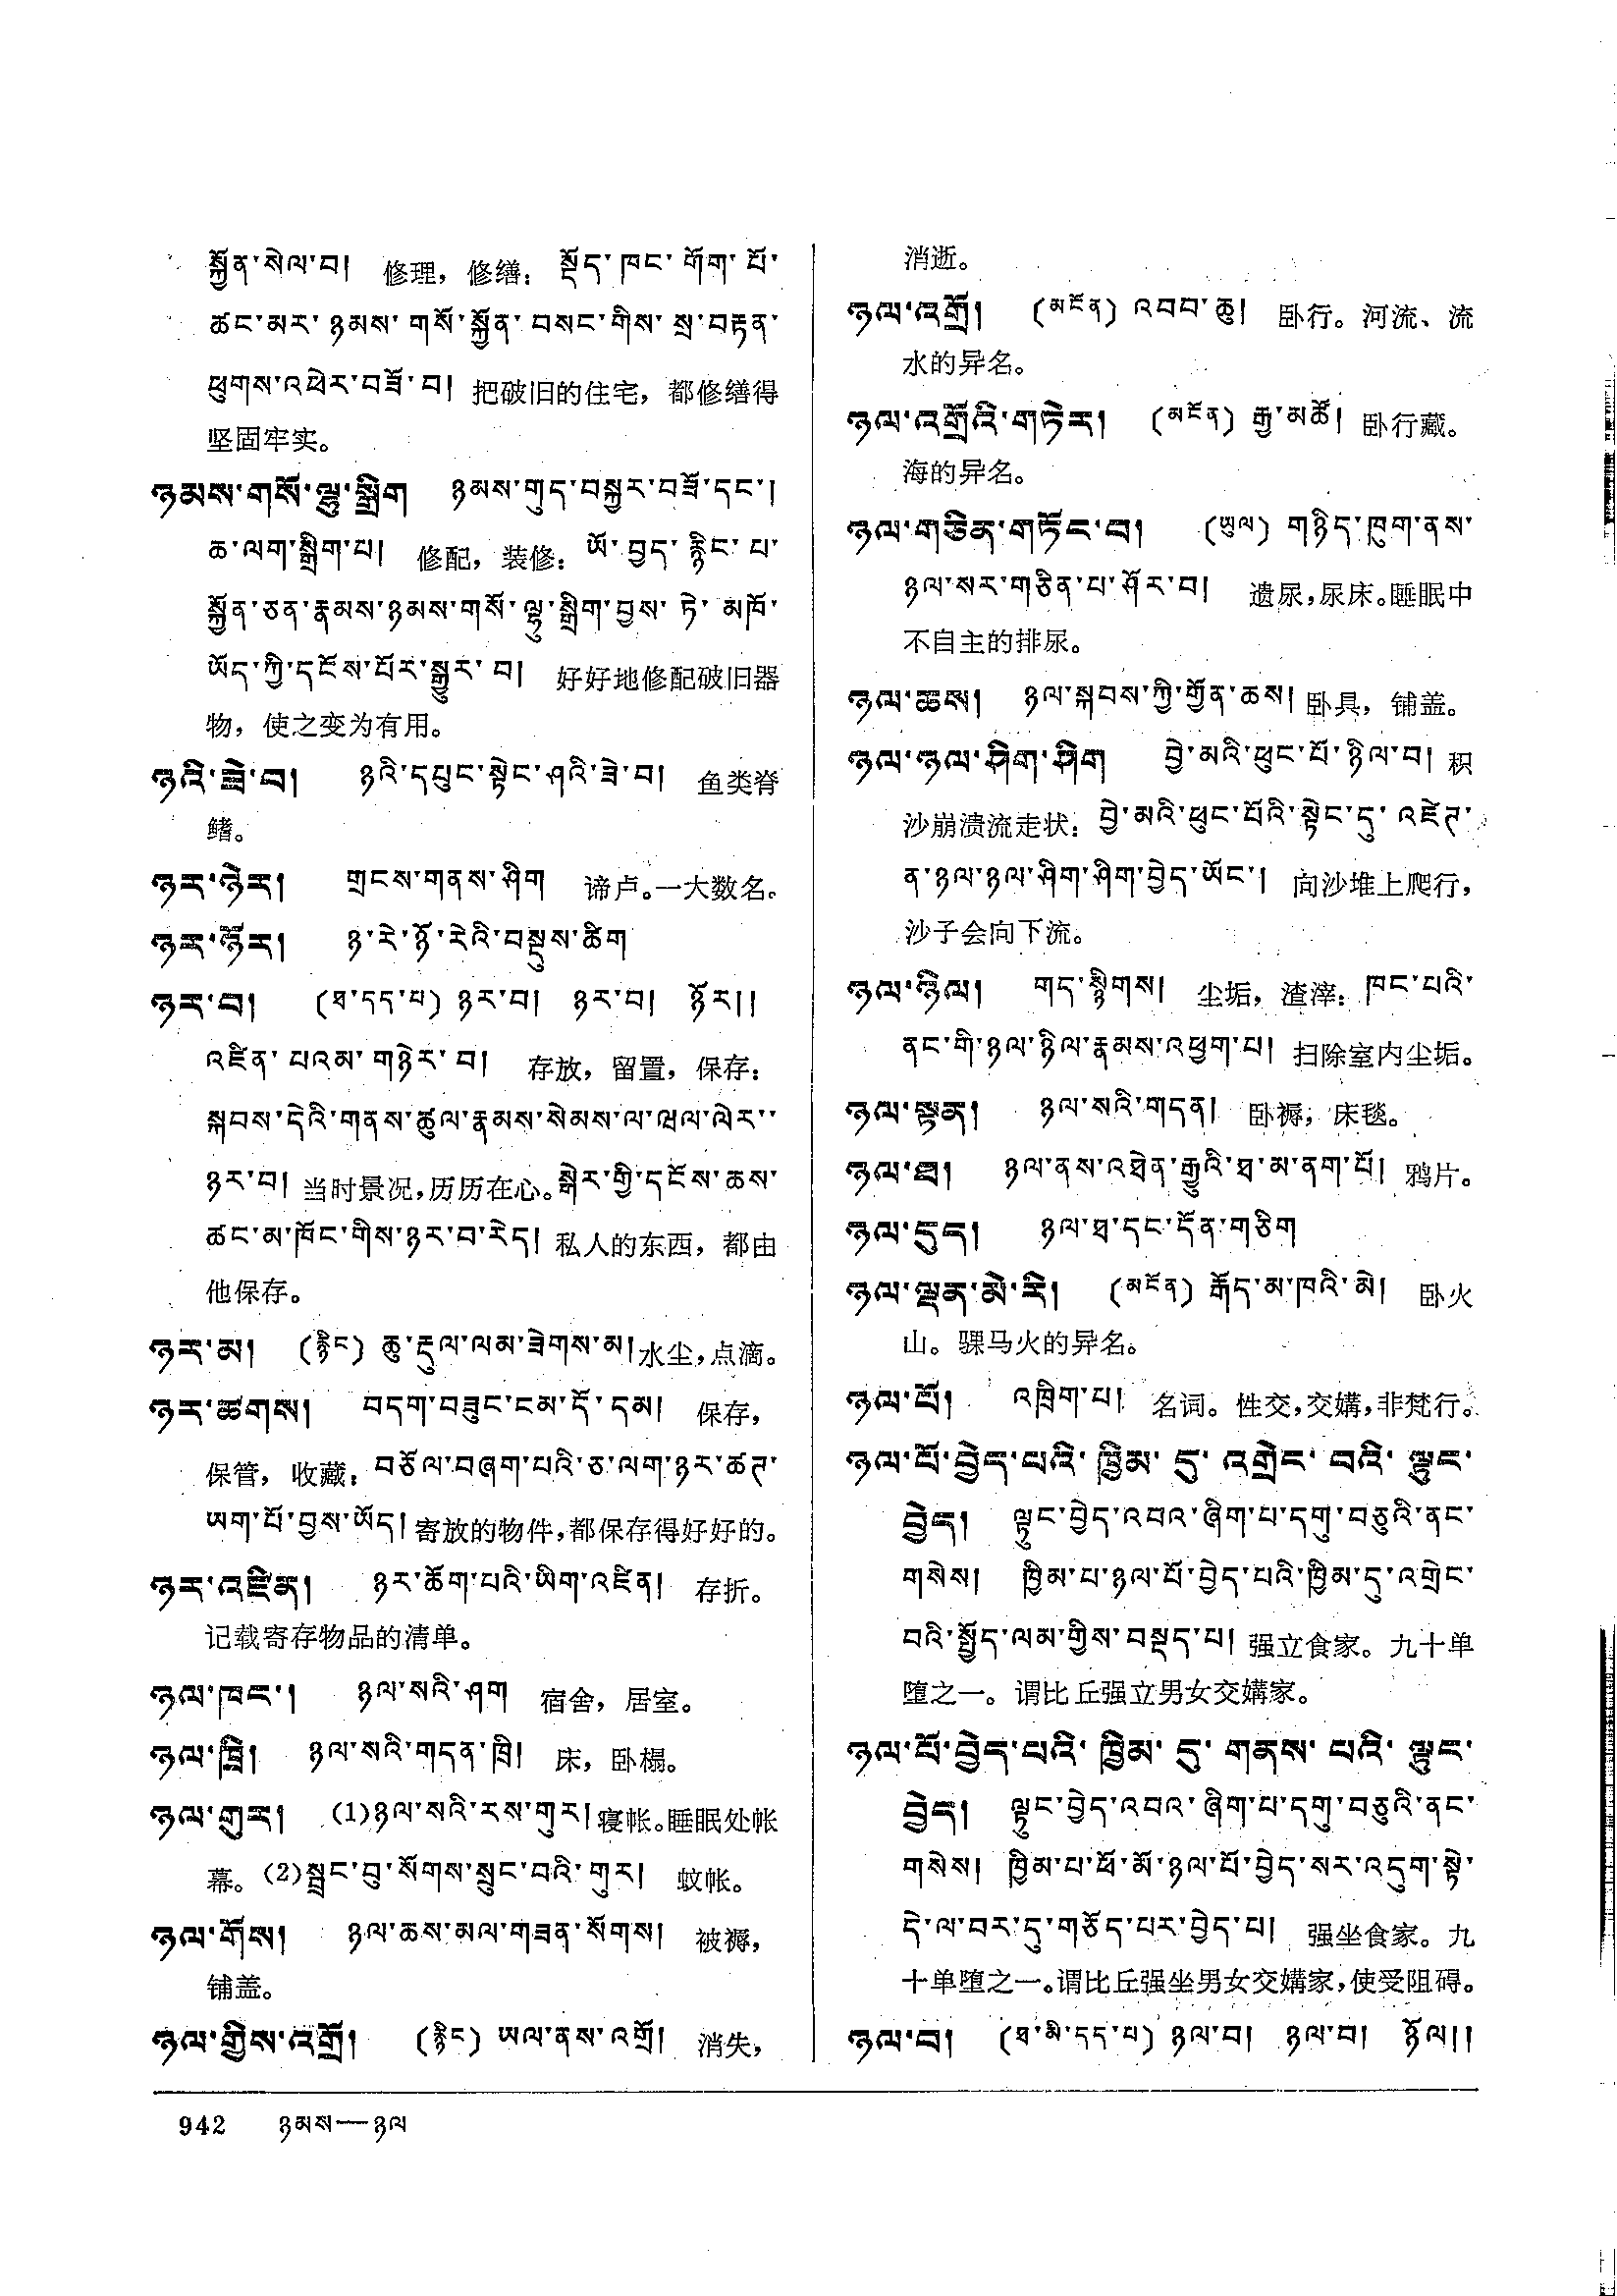 སྐྱོན་སེལ་བ། 修理，修缮：སྡོད་ཁང་གོག་པོ་
ཚང་མར་ཉམས་གསོ་སྐྱོན་བསང་གིས་སྲ་བརྟན་
ཕུགས་འཕེར་བཟོ་བ། 把破旧的住宅，都修缮得
坚固牢实。
ཉམས་གསོ་ལྷུ་སྒྲིག ཉམས་གུད་བསྐྱར་བཟོ་དང་།
ཆ་ལག་སྒྲིག་པ། 修配，装修：ཡོ་བྱད་རྙིང་པ་
སྐྱོན་ཅན་རྣམས་ཉམས་གསོ་ལྷུ་སྒྲིག་བྱས་ཏེ་མཁོ་
ཡོད་ཀྱི་དངོས་པོར་སྒྱུར་བ། 好好地修配破旧器
物，使之变为有用。
ཉའི་ཟེ་བ། ཉའི་དཔུང་སྟེང་ཤའི་ཟེ་བ། 鱼类脊
鳍。
ཉར་ཉེར། གྲངས་གནས་ཤིག 谛卢。一大数名。
ཉར་ཉོར། ཉ་རེ་ཉོ་རེའི་བསྡུས་ཚིག
ཉར་བ། (ཐ་དད་པ) ཉར་བ། ཉར་བ། ཉོར།།
འཛིན་པའམ་གཉེར་བ། 存放，留置，保存：
སྐབས་དེའི་གནས་ཚུལ་རྣམས་སེམས་ལ་ཝལ་ལེར་
ཉར་བ། 当时景况，历历在心。སྒེར་གྱི་དངོས་ཆས་
ཚང་མ་ཁོང་གིས་ཉར་བ་རེད། 私人的东西，都由
他保存。
ཉར་མ། (རྙིང) ཆུ་རྡུལ་ལམ་ཟེགས་མ། 水尘，点滴。
ཉར་ཚགས། བདག་བཟུང་ངམ་དོ་དམ། 保存，
保管，收藏：བཅོལ་བཞག་པའི་ཅ་ལག་ཉར་ཚཊ་
ཡག་པོ་བྱས་ཡོད། 寄放的物件，都保存得好好的。
ཉར་འཛིན། ཉར་ཆོག་པའི་ཡིག་འཛིན། 存折。
记载寄存物品的清单。
ཉལ་ཁང་། ཉལ་སའི་ཤག 宿舍，居室。
ཉལ་ཁྲི། ཉལ་སའི་གདན་ཁྲི། 床，卧榻。
ཉལ་གུར། (1)ཉལ་སའི་རས་གུར། 寝帐。睡眠处帐
幕。(2)སྦྲང་བུ་སོགས་སྲུང་བའི་གུར། 蚊帐。
ཉལ་གོས། ཉལ་ཆས་མལ་གཟན་སོགས། 被褥，
铺盖。
ཉལ་གྱིས་འགྲོ། (རྙིང) ཡལ་ནས་འགྲོ། 消失，
消逝。
ཉལ་འགྲོ། (མངོན) འབབ་ཆུ། 卧行。河流、流
水的异名。
ཉལ་འགྲོའི་གཏེར། (མངོན) རྒྱ་མཚོ། 卧行藏。
海的异名。
ཉལ་གཅིན་གཏོང་བ། (ཡུལ) གཉིད་ཁུག་ནས་
ཉལ་སར་གཅིན་པ་ཤོར་བ། 遗尿，尿床。睡眠中
不自主的排尿。
ཉལ་ཆས། ཉལ་སྐབས་ཀྱི་གྱོན་ཆས། 卧具，铺盖。
ཉལ་ཉལ་ཤིག་ཤིག བྱེ་མའི་ཕུང་པོ་ཉིལ་བ། 积
沙崩溃流走状：བྱེ་མའི་ཕུང་པོའི་སྟེང་དུ་འཛེཊ་
ན་ཉལ་ཉལ་ཤིག་ཤིག་བྱེད་ཡོང་། 向沙堆上爬行，
沙子会向下流。
ཉལ་ཉིལ། གད་སྙིགས། 尘垢，渣滓：ཁང་པའི་
ནང་གི་ཉལ་ཉིལ་རྣམས་འཕྱག་པ། 扫除室内尘垢。
ཉལ་སྟན། ཉལ་སའི་གདན། 卧褥，床毯。
ཉལ་ཐ། ཉལ་ནས་འཐེན་རྒྱུའི་ཐ་མ་ནག་པོ། 鸦片。
ཉལ་དུད། ཉལ་ཐ་དང་དོན་གཅིག
ཉལ་ལྡན་མེ་རི། (མངོན) རྒོད་མ་ཁའི་མེ། 卧火
山。骒马火的异名。
ཉལ་པོ། འཁྲིག་པ། 名词。性交，交媾，非梵行。
ཉལ་པོ་བྱེད་པའི་ཁྱིམ་དུ་འགྲེང་བའི་ལྟུང་
བྱེད། ལྟུང་བྱེད་འབའ་ཞིག་པ་དགུ་བཅུའི་ནང་
གསེས། ཁྱིམ་པ་ཉལ་པོ་བྱེད་པའི་ཁྱིམ་དུ་འགྲེང་
བའི་སྤྱོད་ལམ་གྱིས་བསྡད་པ། 强立食家。九十单
堕之一。谓比丘强立男女交媾家。
ཉལ་པོ་བྱེད་པའི་ཁྱིམ་དུ་གནས་པའི་ལྟུང་
བྱེད། ལྟུང་བྱེད་འབའ་ཞིག་པ་དགུ་བཅུའི་ནང་
གསེས། ཁྱིམ་པ་ཕོ་མོ་ཉལ་པོ་བྱེད་སར་འདུག་སྟེ་
དེ་ལ་བར་དུ་གཅོད་པར་བྱེད་པ། 强坐食家。九
十单堕之一。谓比丘强坐男女交媾家，使受阻碍。
ཉལ་བ། (ཐ་མི་དད་པ) ཉལ་བ། ཉལ་བ། ཉོལ།།
942 ཉམས—ཉལ